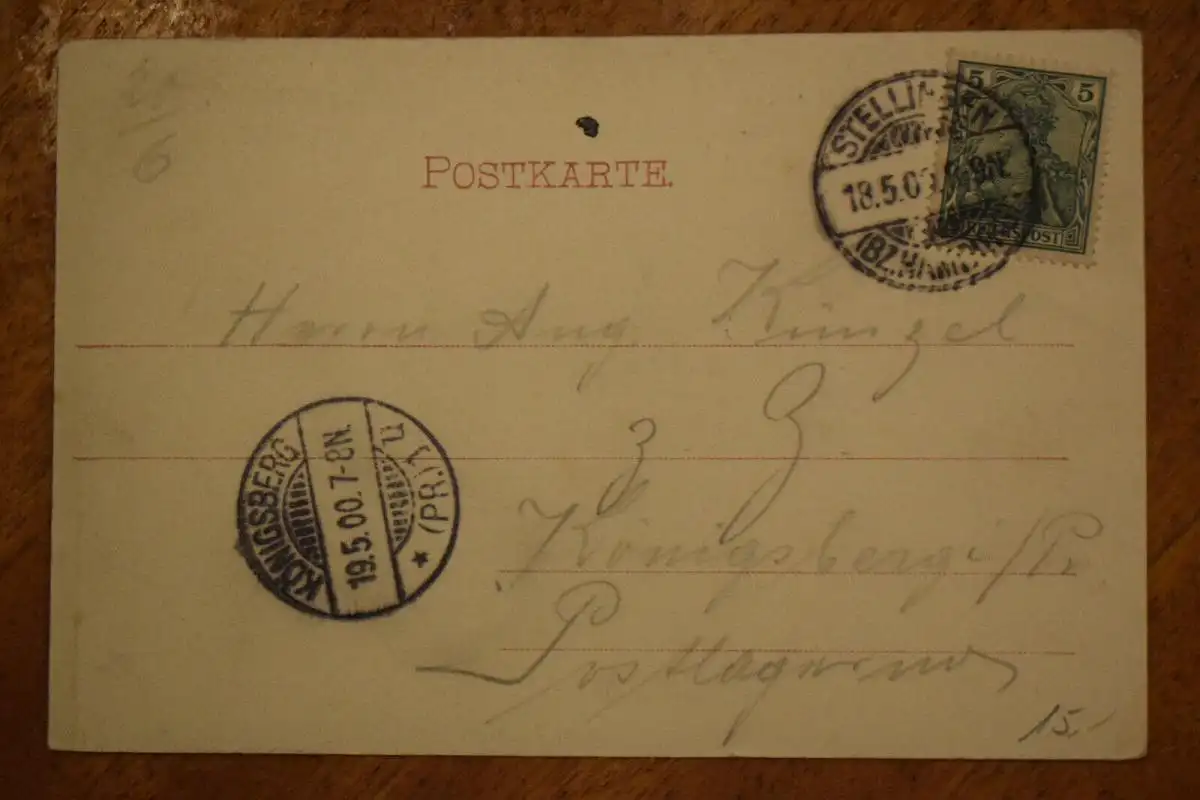 POSTKARTE.
5 5
STELLINGEN
18.5.00. 8-9N.
(BZ. HAMBURG)
REICHSPOST
Herrn Aug Künzel
z Z
Königsberg i/Pr
Postlagernd
KÖNIGSBERG
19.5.00.7-8N.
* (PR.) 1 u
15.-